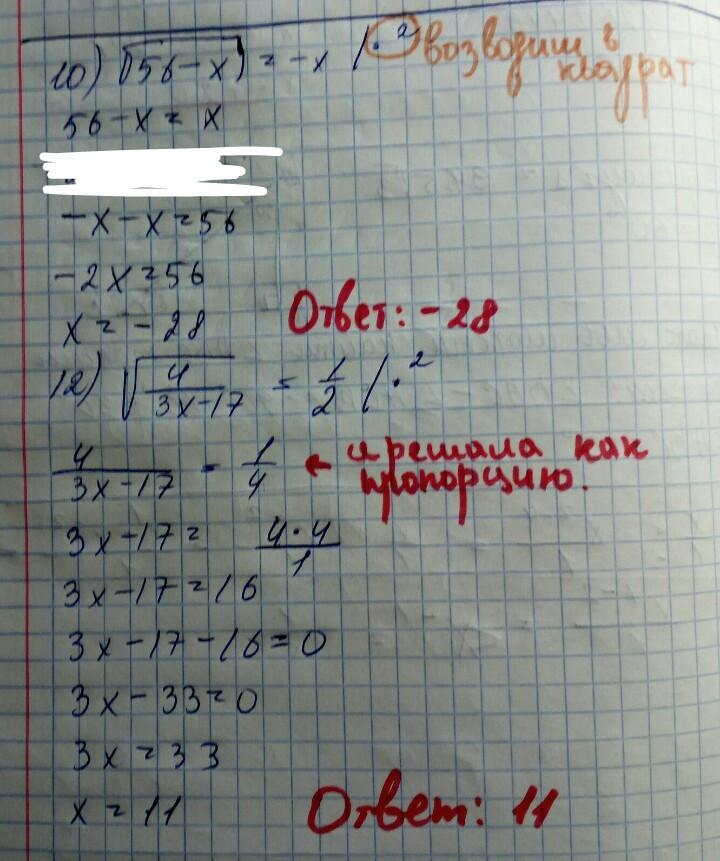 10) √(56-x) = -x /·² возводим в
квадрат
56-x = x
-x-x=56
-2x=56
x = -28 Ответ: -28
12) √(4/(3x-17)) = 1/2 /·²
4/(3x-17) = 1/4 ← я решала как
пропорцию.
3x-17= (4·4)/1
3x-17=16
3x-17-16=0
3x-33=0
3x=33
x = 11 Ответ: 11